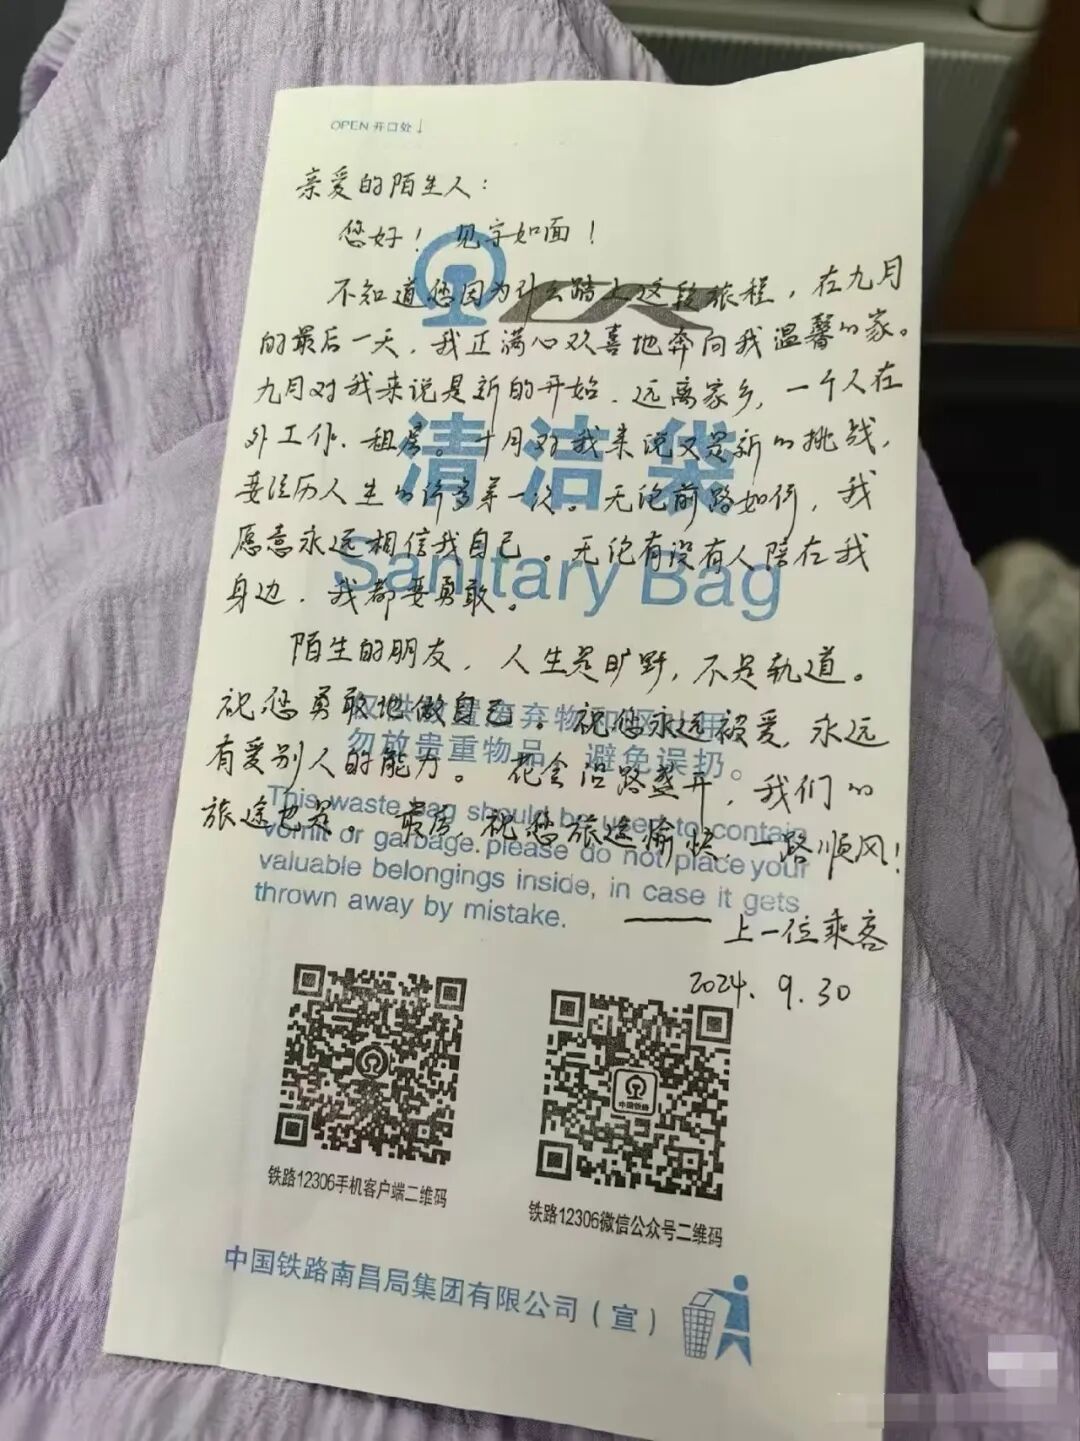 OPEN 开口处↓
亲爱的陌生人：
您好！见字如面！
不知道您因为什么踏上这段旅程，在九月
的最后一天，我正满心欢喜地奔向我温馨的家。
九月对我来说是新的开始，远离家乡，一个人在
外工作、租房。十月对我来说又是新的挑战，
要经历人生的许多第一次。无论前路如何，我
愿意永远相信我自己。无论有没有人陪在我
身边，我都要勇敢。
陌生的朋友，人生是旷野，不是轨道。
祝您勇敢地做自己。祝您永远被爱，永远
有爱别人的能力。花会沿路盛开，我们的
旅途也是。最后，祝您旅途愉快，一路顺风！
——上一位乘客
2024.9.30
清洁袋
Sanitary Bag
废弃物
勿放贵重物品，避免误扔。
This waste bag should be used to contain
vomit or garbage.please do not place your
valuable belongings inside, in case it gets
thrown away by mistake.
中国铁路
铁路12306手机客户端二维码
铁路12306微信公众号二维码
中国铁路南昌局集团有限公司（宣）